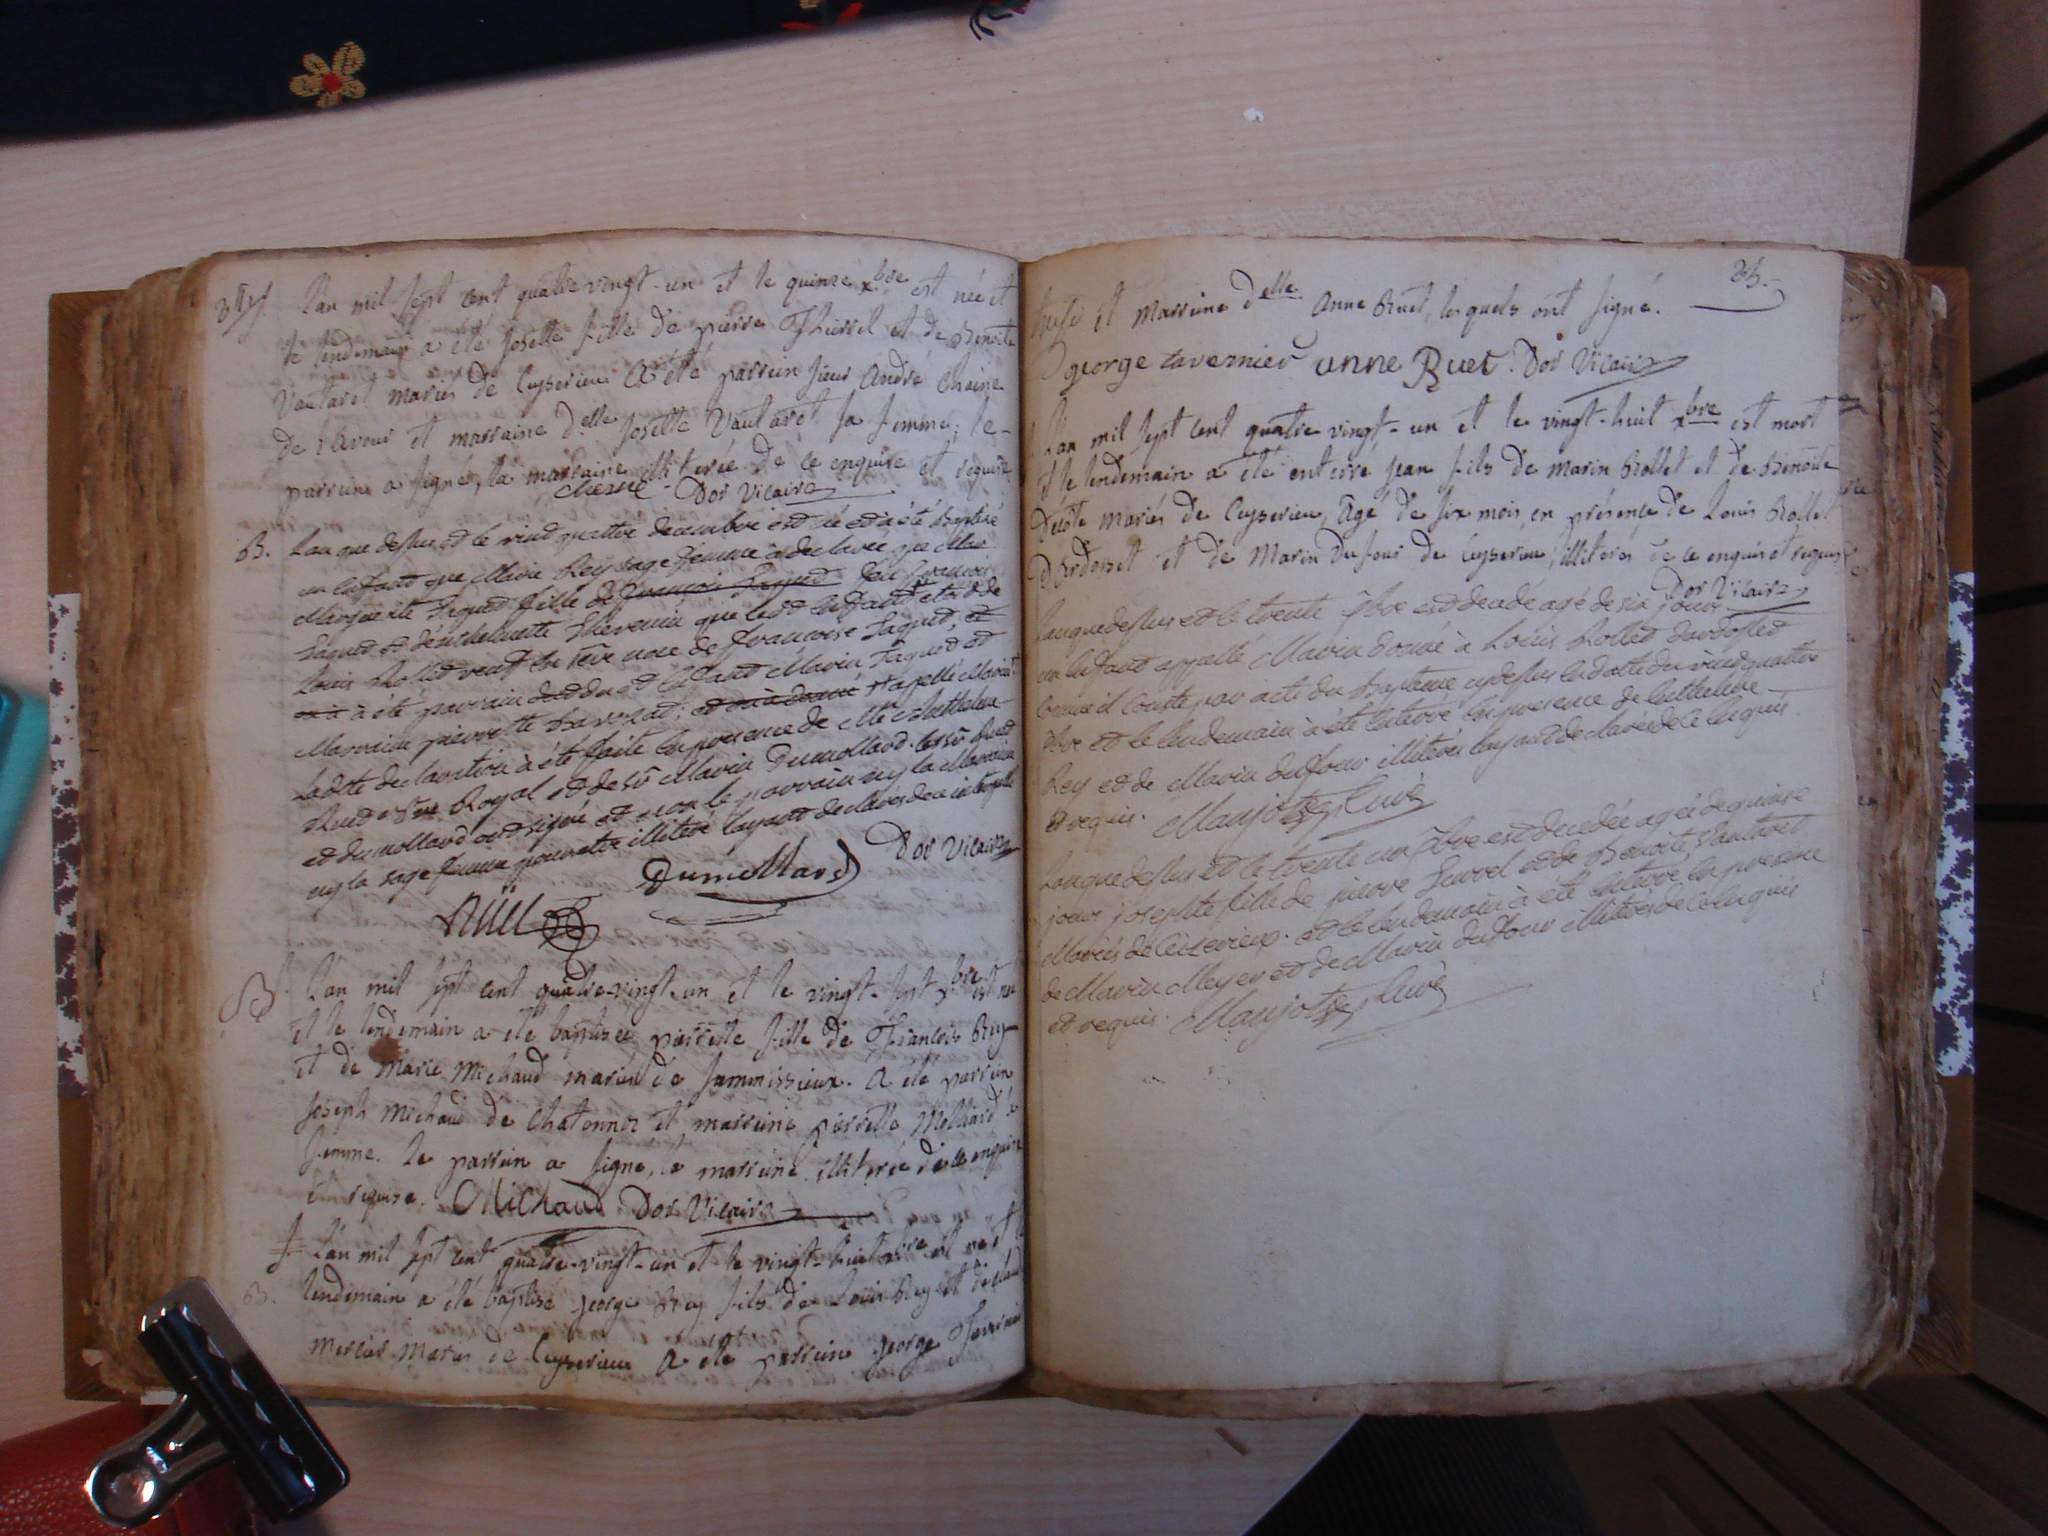 L'an mil sept cent quatre vingt-un et le quinze xbre est née et
le lendemain a été Josette fille de pierre Thierrel et de Benoite
Vautaret mariés de Cuyserieu a été parrein sieur André Chaine
de Lavour et marraine delle Josette Vautaret sa femme; le
parrein a signé, la marraine illiterée de ce enquise et requise
Dor Vicaire
B. L'an que dessus et le vint quattre decembre est né et a été baptisé
un enfant que Marie Rey sage femme à declarée que
Marguerite Fille de Francois
et de Thevenin que ledt Enfant etoit de
Louis Rollet de francoise et
a été parrain dudt Enfant Marin et
Marraine pierrette apellé Marin
Ladte declaration à été faite En presence de
Royal et de sr Marin Dumollard. Les sr
et dumollard ont signé et non le parrain ny la Marraine
ny la sage femme pour etre illiteré layant declarés de ce interpellé
Dumollard Dor Vicaire
Rüel
B. L'an mil sept cent quatre-vingt-un et le vingt-sept xbre est née
et le lendemain a été baptisée pierrette fille de François Rey
et de Marie Michaud mariés de Sammissieux. a été parrein
Joseph Michaud de Chatonnoz et marreine pierrette Molliard sa
femme. le parrein a signé, la marreine illiterée de ce enquise
et requise. Michaud Dor Vicaire
L'an mil sept cent quatre-vingt-un et le vingt-huit xbre est né et le
B. lendemain a été baptisé george Rey fils de Louis Rey et de
Mercier mariés de Cuyserieu a été parrein george Tavernier
et marreine delle Anne Ruet, lesquels ont signé.
george tavernier anne Ruet. Dor Vicaire
L'an mil sept cent quatre vingt-un et le vingt-huit xbre est mort
et le lendemain a été enterré Jean fils de Marin Rollet et de Benoite
mariés de Cuyserieu, âgé de six mois, en présence de Louis Rollet
D'Ardosset et de Marin Dufour de Cuyserieu, illiterés de ce enquis et requis
Dor Vicaire
L'an que dessus et le trente Xbre est decedé agé de six jours
un Enfant appellé Marin donné à Louis Rollet dardosset
comme il Conste par acte du Baptême cy dessus En datte du vint quattre
Xbre et le lendemain à été Enterré En presence de Catheline
Rey et de Marin duffour illiterés layant declarés de ce Enquis
et requis. Manjot Curé
L'an que dessus et le trente un Xbre est decedée agée de quinze
jours josephte fille de pierre et de Benoite Vautaret
Mariés de Ceizerieux. et le lendemain à été Enterré En presence
de Marin Meyer et de Marin duffour illiterés de ce Enquis
et requis. Manjot Curé